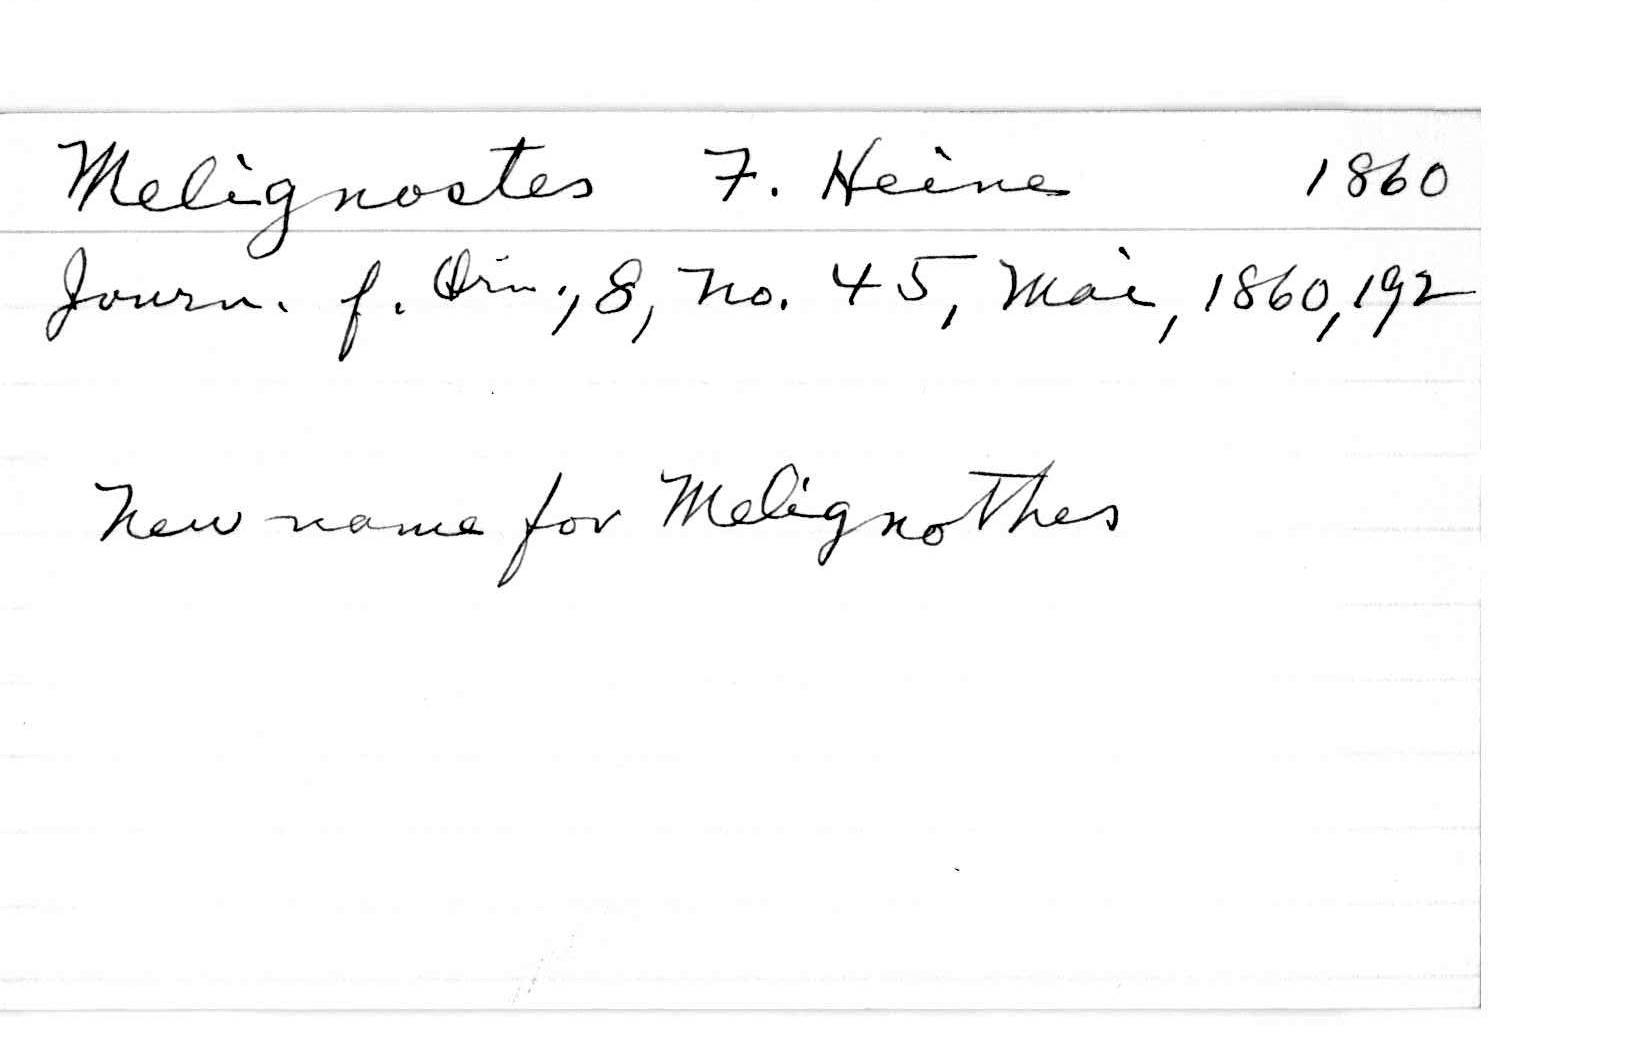 Melignostes F. Heine 1860
Journ. f. Orn., 8, no. 45, Mai, 1860, 192
New name for Melignothes